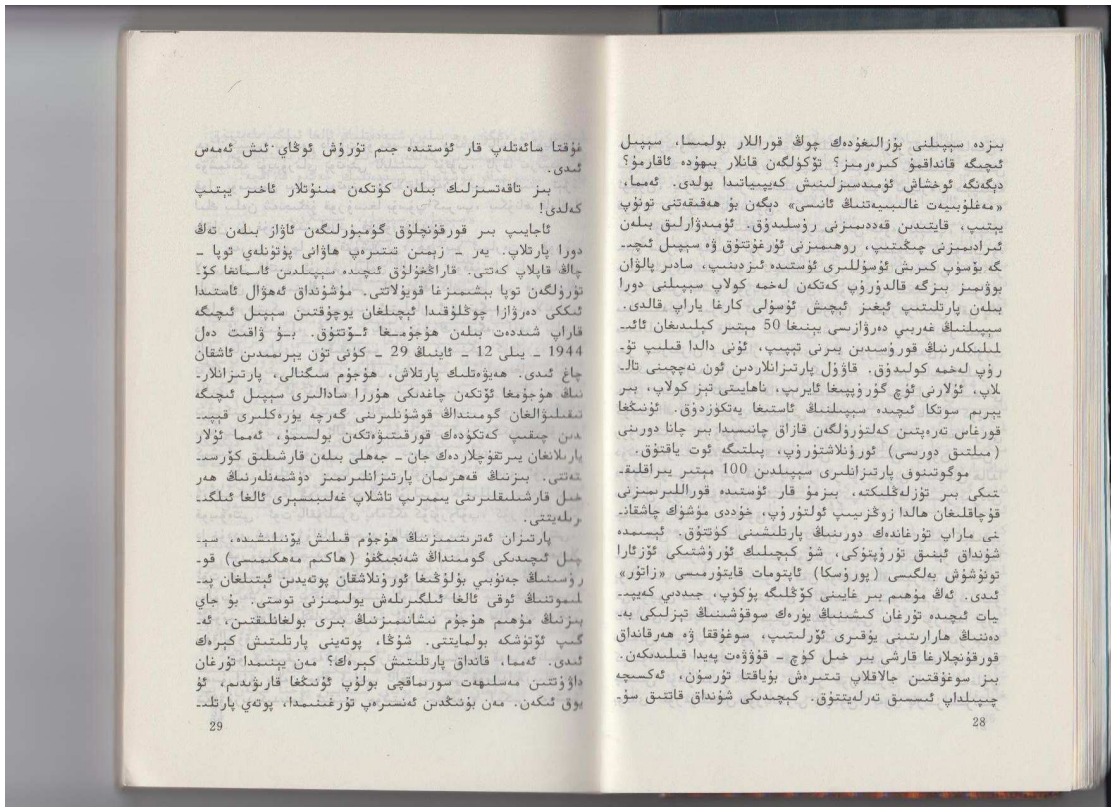 بىزدە سېپىلنى بۇزالىغۇدەك چوڭ قوراللار بولمىسا، سېپىل
ئىچىگە قانداقمۇ كىرەرمىز؟ تۆكۈلگەن قانلار بىھۇدە ئاقارمۇ؟
دېگەنگە ئوخشاش ئۈمىدسىزلىنىش كەيپىياتىدا بولدى. ئەمما،
«مەغلۇبىيەت غالىبىيەتنىڭ ئانىسى» دېگەن بۇ ھەقىقەتنى تونۇپ
يېتىپ، قايتىدىن قەددىمىزنى رۇسلىدۇق. ئۈمىدۋارلىق بىلەن
ئىرادىمىزنى چىڭىتىپ، روھىمىزنى ئۇرغۇتتۇق ۋە سېپىل ئىچى‍ـ
گە بۆسۈپ كىرىش ئۇسۇللىرى ئۈستىدە ئىزدىنىپ، سادىر پالۋان
بوۋىمىز بىزگە قالدۇرۇپ كەتكەن لەخمە كولاپ سېپىلنى دورا
بىلەن پارتلىتىپ ئېغىز ئېچىش ئۇسۇلى كارغا ياراپ قالدى.
سېپىلنىڭ غەربىي دەرۋازىسى يېنىغا 50 مېتىر كېلىدىغان ئائىـ
لىلىكلەرنىڭ قورۇسىدىن يىرنى تېپىپ، ئۇنى دالدا قىلىپ تۇـ
رۇپ لەخمە كولىدۇق. قاۋۇل پارتىزانلاردىن ئون نەچچىنى تالـ
لاپ، ئۇلارنى ئۈچ گۇرۇپپىغا ئايرىپ، ناھايىتى تېز كولاپ، بىر
يېرىم سوتكا ئىچىدە سېپىلنىڭ ئاستىغا يەتكۈزدۇق. ئۇنىڭغا
قورغاس تەرەپتىن كەلتۈرۈلگەن قازاق چانىسىدا بىر چانا دورىنى
(مىلتىق دورىسى) ئورۇنلاشتۇرۇپ، پىلتىگە ئوت ياقتۇق.
موگوتىنوق پارتىزانلىرى سېپىلدىن 100 مېتىر يىراقلىقـ
تىكى بىر تۈزلەڭلىكتە، بىزمۇ قار ئۈستىدە قوراللىرىمىزنى
قۇچاقلىغان ھالدا زوڭزىيىپ ئولتۇرۇپ، خۇددى مۈشۈك چاشقانـ
نى ماراپ تۇرغاندەك دورىنىڭ پارتلىشىنى كۈتتۇق. ئېسىمدە
شۇنداق ئېنىق تۇرۇپتۇكى، شۇ كېچىلىك ئۇرۇشتىكى ئۆزئارا
تونۇشۇش بەلگىسى (پورۇسكا) ئاپتومات قايتۇرمىسى «زاتۋر»
ئىدى. ئەڭ مۇھىم بىر غايىنى كۆڭلىگە پۈكۈپ، جىددىي كەيپىـ
يات ئىچىدە تۇرغان كىشىنىڭ يۈرەك سوقۇشىنىڭ تېزلىكى بەـ
دەننىڭ ھارارىتىنى يۇقىرى ئۆرلىتىپ، سوغۇققا ۋە ھەرقانداق
قورقۇنچلارغا قارشى بىر خىل كۈچ ـ قۇۋۋەت پەيدا قىلىدىكەن.
بىز سوغۇقتىن جالاقلاپ تىترەش بۇياقتا تۇرسۇن، ئەكسىچە
چىپىلداپ ئىسسىق تەرلەيتتۇق. كېچىدىكى شۇنداق قاتتىق سوـ
28
غۇقتا سائەتلەپ قار ئۈستىدە جىم تۇرۇش ئوڭاي ئىش ئەمەس
ئىدى.
بىز تاقەتسىزلىك بىلەن كۈتكەن مىنۇتلار ئاخىر يېتىپ
كەلدى!
ئاجايىپ بىر قورقۇنچلۇق گۈمبۈرلىگەن ئاۋاز بىلەن تەڭ
دورا پارتلاپ. يەر ـ زېمىن تىترەپ ھاۋانى پۈتۈنلەي توپا ـ
چاڭ قاپلاپ كەتتى. قاراڭغۇلۇق ئىچىدە سېپىلدىن ئاسمانغا كۆـ
تۈرۈلگەن توپا بېشىمىزغا قويۇلاتتى. مۇشۇنداق ئەھۋال ئاستىدا
ئىككى دەرۋازا چوڭلۇقىدا ئېچىلغان يوچۇقتىن سېپىل ئىچىگە
قاراپ شىددەت بىلەن ھۇجۇمغا ئۆتتۇق. بۇ ۋاقىت دەل
1944 ـ يىلى 12 ـ ئاينىڭ 29 ـ كۈنى تۈن يېرىمىدىن ئاشقان
چاغ ئىدى. ھەيۋەتلىك پارتلاش، ھۇجۇم سىگنالى، پارتىزانلارـ
نىڭ ھۇجۇمغا ئۆتكەن چاغدىكى ھۇررا سادالىرى سېپىل ئىچىگە
تىقىلىۋالغان گومىنداڭ قوشۇنلىرىنى گەرچە يۈرەكلىرى قېپىـ
دىن چىقىپ كەتكۈدەك قورقىتىۋەتكەن بولسىمۇ، ئەمما ئۇلار
يارىلانغان يىرتقۇچلاردەك جان ـ جەھلى بىلەن قارشىلىق كۆرسىـ
تەتتى. بىزنىڭ قەھرىمان پارتىزانلىرىمىز دۈشمەنلەرنىڭ ھەر
خىل قارشىلىقلىرىنى يىمىرىپ تاشلاپ غەلىبىسېرى ئالغا ئىلگىـ
رىلەيتتى.
پارتىزان ئەترىتىمىزنىڭ ھۇجۇم قىلىش يۆنىلىشىدە، سېـ
پىل ئىچىدىكى گومىنداڭ شەنجىڭفۇ (ھاكىم مەھكىمىسى) قوـ
رۇسىنىڭ جەنۇبىي بۇلۇڭىغا ئورۇنلاشقان پوتەيدىن ئېتىلغان پىـ
لىموتنىڭ ئوقى ئالغا ئىلگىرىلەش يولىمىزنى توستى. بۇ جاي
بىزنىڭ مۇھىم ھۇجۇم نىشانىمىزنىڭ بىرى بولغانلىقتىن، ئەـ
گىپ ئۆتۈشكە بولمايتتى. شۇڭا، پوتەينى پارتلىتىش كېرەك
ئىدى. ئەمما، قانداق پارتلىتىش كېرەك؟ مەن يېنىمدا تۇرغان
داۋۇتتىن مەسلىھەت سورىماقچى بولۇپ ئۇنىڭغا قارىۋىدىم، ئۇ
يوق ئىكەن. مەن بۇنىڭدىن ئەنسىرەپ تۇرغىنىمدا، پوتەي پارتلىـ
29